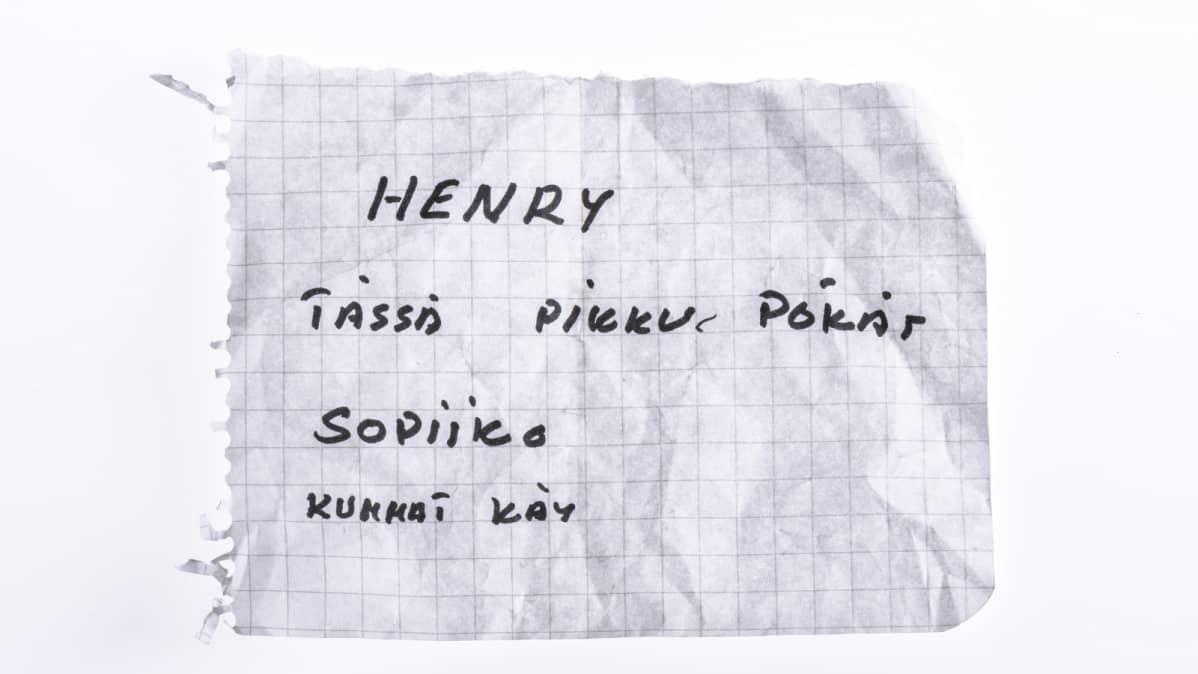 HENRY
TÄSSÄ PIKKU PÖKÄT
SOPIIKO
KUMMAT KÄY